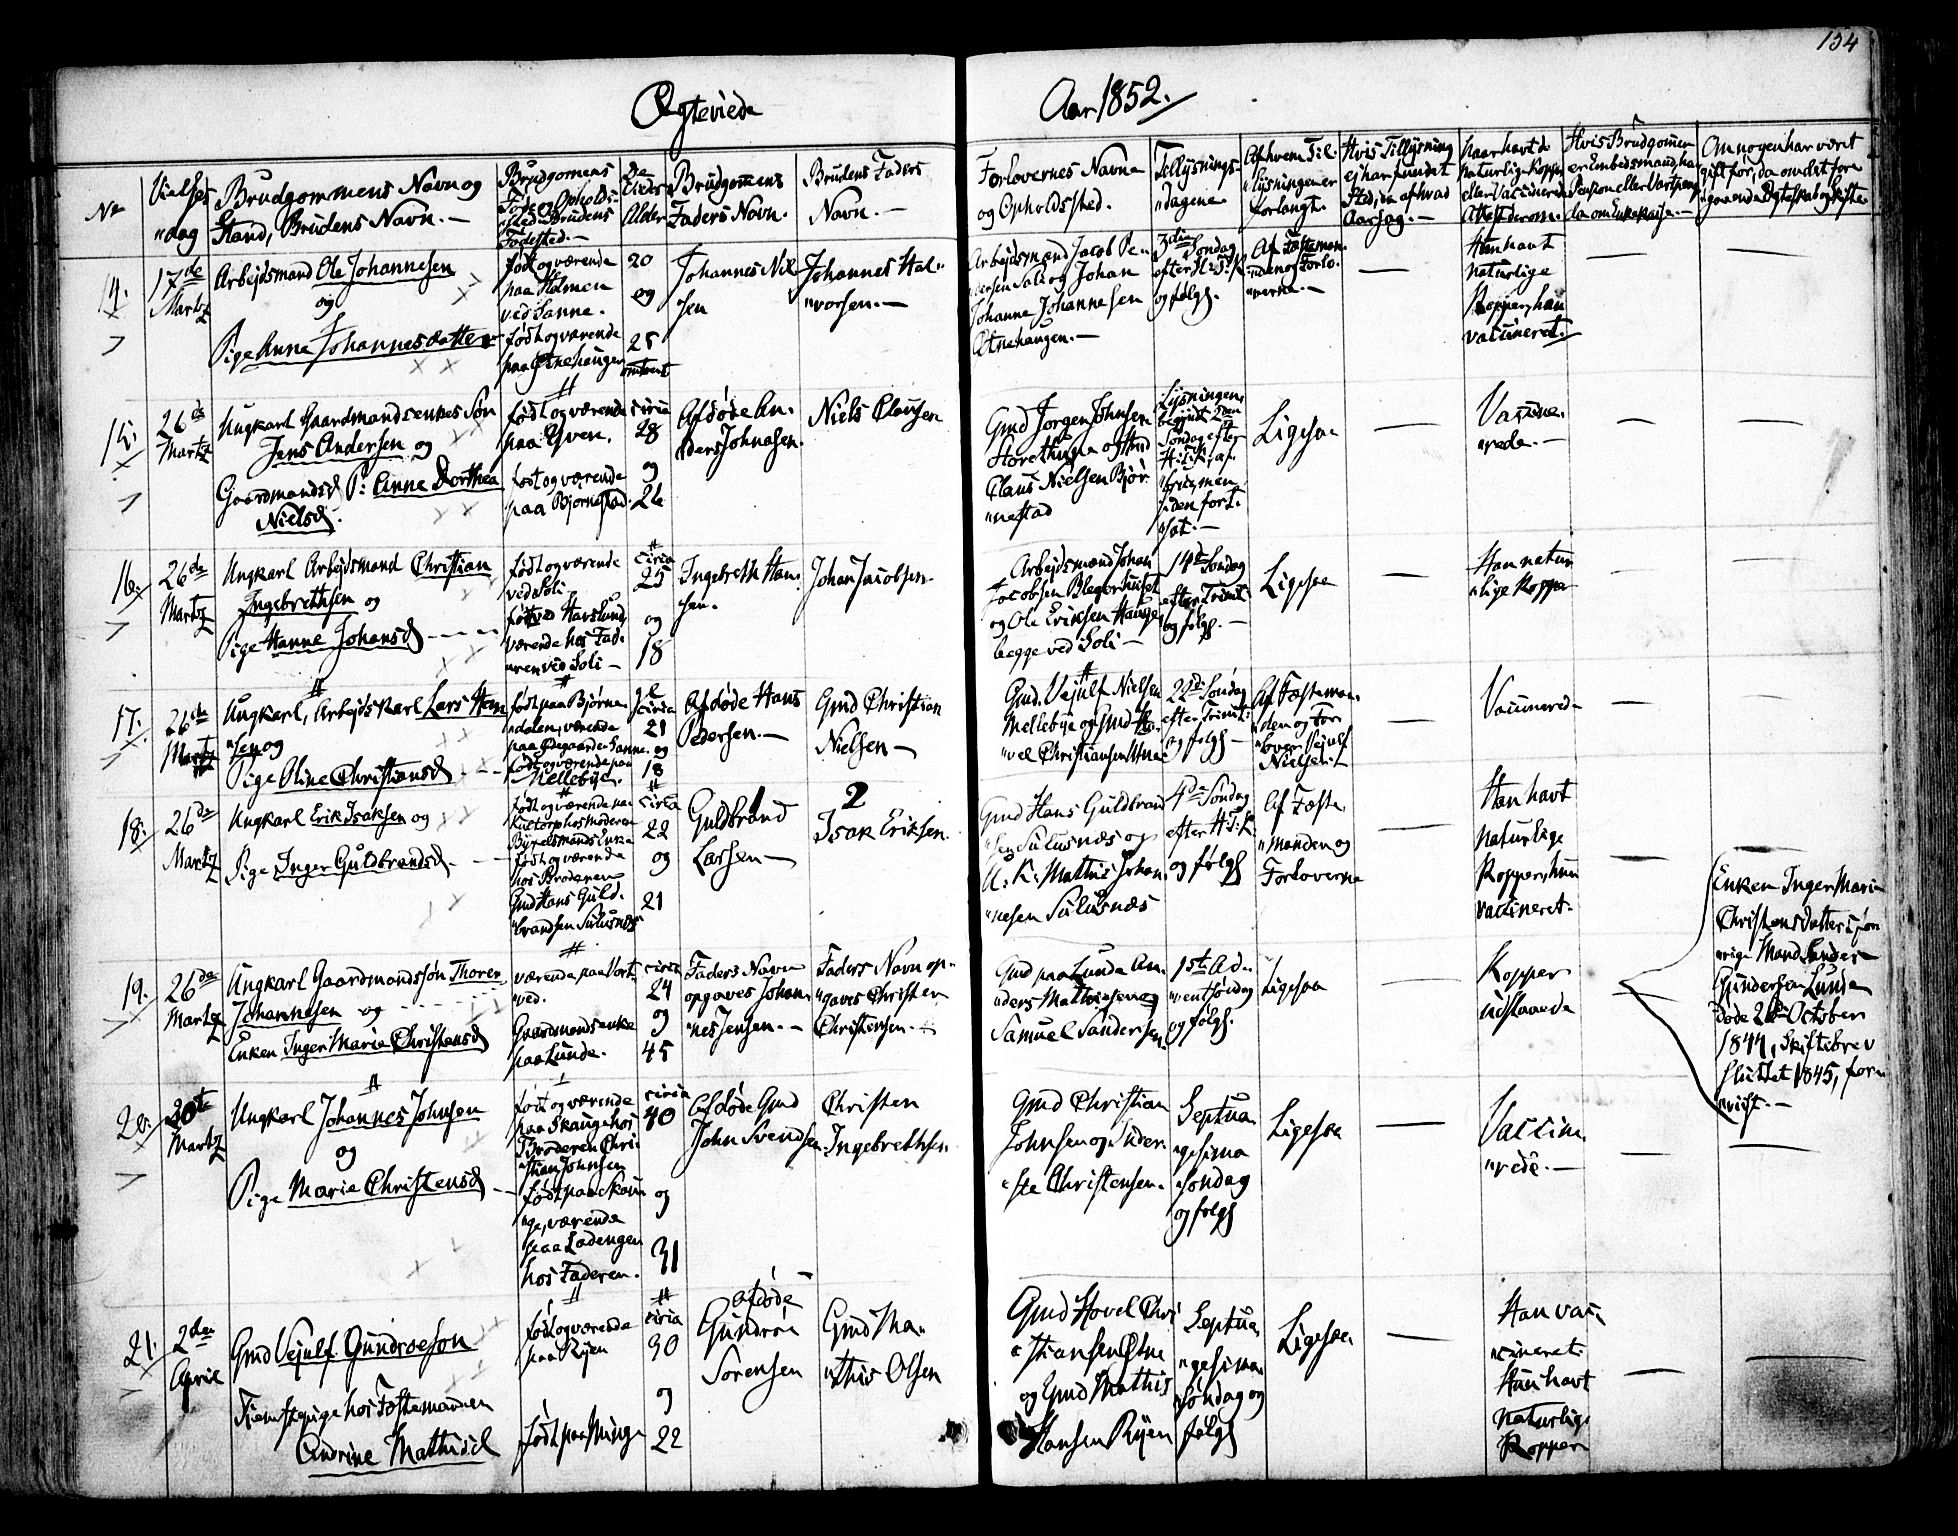 134
Ægteviede
Aar 1852.
No
Vielses
"dag
Brudgommens Navn og
Stand, Brudens Navn. —
Brudgommens
Føde og Opholds-
sted. Brudens
Fødested. —
De
Alder
Brudgommens
Faders Navn.
Brudens Faders
Navn. —
Forlovernes Navne
og Opholdssted.
Tillysnings-
"dagene
Af hvem Til-
"lysningen er
forlangt.
Hvis Tillysning
ej har fundet
Sted, da af hvad
Aarsag. —
Naar havt de
naturlige Kopper
eller Vaccinerede
Attest derom.
Hvis Brudgommen
er Embedsmand, har
Pension eller
da om Enkekasse. —
Om nogen har været
gift før, da omdet fore
"gaaende Ægteskab og Skifte
14.
17de
Martz
Arbejdsmand Ole Johannesen
og
Pige Anne Johannesdatter
født og værende
paa Holmen
ved Sanne.
født og værende
paa Østnehaugen
20
og
25
omtrent
Johannes Niel
"sen
Johannes Hal-
"vorsen. —
Arbejdsmand Jacob Pe-
"dersen Soli og Johan
Johanne Johannesen
Østnehaugen. —
3die Søndag
efter H: 3: K
og følgs.
Af Fæsteman-
"den og Forlo-
"verne. —
—
Han havt
naturlige
Kopper, hun
vaccineret. —
—
—
15.
26de
Martz
Ungkarl Gaardmandsenkes Søn
Jens Andersen og
Gaardmandsd P: Anne Dorthea
Nielsd.
født og værende
paa Yven.
født og værende
paa Bjørnestad.
circa
28
og
26
Afdøde An-
"ders Johnasen.
Niels Clausen
Gmd Jørgen Johnsen
Storethune og Gmd
Claus Nielsen Bjør-
"nestad
Lysningen
begyndt 2den
Søndag efter
H: 3: K, af-
"brudt, men
siden fort-
"sat. —
Ligesaa
—
Vaccine-
"rede. —
—
—
16.
26de
Martz
Ungkarl Arbejdsmand Christian
Ingebrethsen og
Pige Hanne Johansd
født og værende
ved Soli
født ved Havslund,
værende hos Fad-
"ren ved Soli —
circa
25
og
18
Ingebreth Han-
"sen.
Johan Jacobsen
Arbejdsmand Johan
Jacobsen Blegerhuset
og Ole Eriksen Hauge
begge ved Soli —
14de Søndag
efter Trinit
og følgs. —
Ligesaa
—
Han natur
"lige Kopper
—
—
17.
26de
Martz
Ungkarl, Arbejdskarl Lars Han
"sen og
Pige Oline Christiansd
født paa Bjørne
"dalen, værende
paa Ødegaarden Sanne.
født og værende paa
Mellebye.
circa
21
og
18
Afdøde Hans
Pedersen. —
Gmd Christian
Nielsen —
Gmd. Vejulf Nielsen
Mellebye og Gmd Ho-
"vel Christiansen Utne
22de Søndag
efter Trinit:
og følgs —
Af Fæsteman-
"den og For-
"lover Vejulf
Nielsen.
—
Vaccinered
—
18.
26de
Martz
Ungkarl Erik Isaksen og
Pige Inger Guldbrandsd.
født og værende paa
Kuetorp hos Moderen
Bygselmands Enke
født og værende
hos Broderen
Gmd Hans Guld-
"brandsen Sulusnæs
circa
22
og
21
1
Guldbrand
Larsen —
2
Isak Eriksen.
Gmd Hans Guldbrand
"sen Sulusnæs og
U: K: Mathis Johan-
"nesen Sulusnæs
4de Søndag
efter H: 3: K:
og følgs
Af Fæste
"Manden og
Forloverne
—
Han havt
naturlige
Kopper, hun
vaccineret.
—
—
19.
26de
Martz
Ungkarl Gaardmandssøn Thorer
Johannesen og
Enken Inger Marie Christensd
værende paa Tort-
"ved.
Gaardmandsenke
paa Lunde.
circa
24
og
45
Faders Navn
opgaves Johan-
"nes Jensen. —
Faders Navn op-
"gaves Christen
Christensen. —
Gmd paa Lunde An-
"ders Mathiesen og
Samuel Sandersen.
1ste Ad-
"ventsøndag
og følgs.
Ligesaa
—
Kopper
udstaaede
—
Enken Inger Marie
Christensdatters for-
"rige Mand Sander
Gundersen Lunde
døde 26de October
1844, Skiftebrev
sluttet 1845, fore-
"viist. —
20.
20de
Martz
Ungkarl Johannes Johnsen
og
Pige Marie Christensd
født og værende
paa Skauge hos
Broderen Chri-
"stian Johnsen
født paa Skau-
"ge, værende
paa Ladengen
hos Faderen.
circa
40
og
31
Afdøde Gmd
John Svendsen
Christen
Ingebrethsen
Gmd Christian
Johnsen og Inder-
"ste Christensen.
Septua-
"gesima
Søndag
og følgs
Ligesaa
—
Vaccine-
"rede. —
—
—
21.
2den
April
Gmd Vejulf Gundroeson
Tjenstepige hos Fæstemanden
Andrine Mathisd
født og værende
paa Ryen
født paa Minge
circa
30
og
22
afdøde
Gundroe
Sørensen
Gmd Ma-
"this Olsen
Gmd Hovel Chri
"stiansen Utne
og Gmd Mathis
Hansen Ryen
Septua
"gesima
Søndag og
følgs
Ligesaa
—
Han vac-
"cineret
Hun havt
naturlige
Kopper
—
—